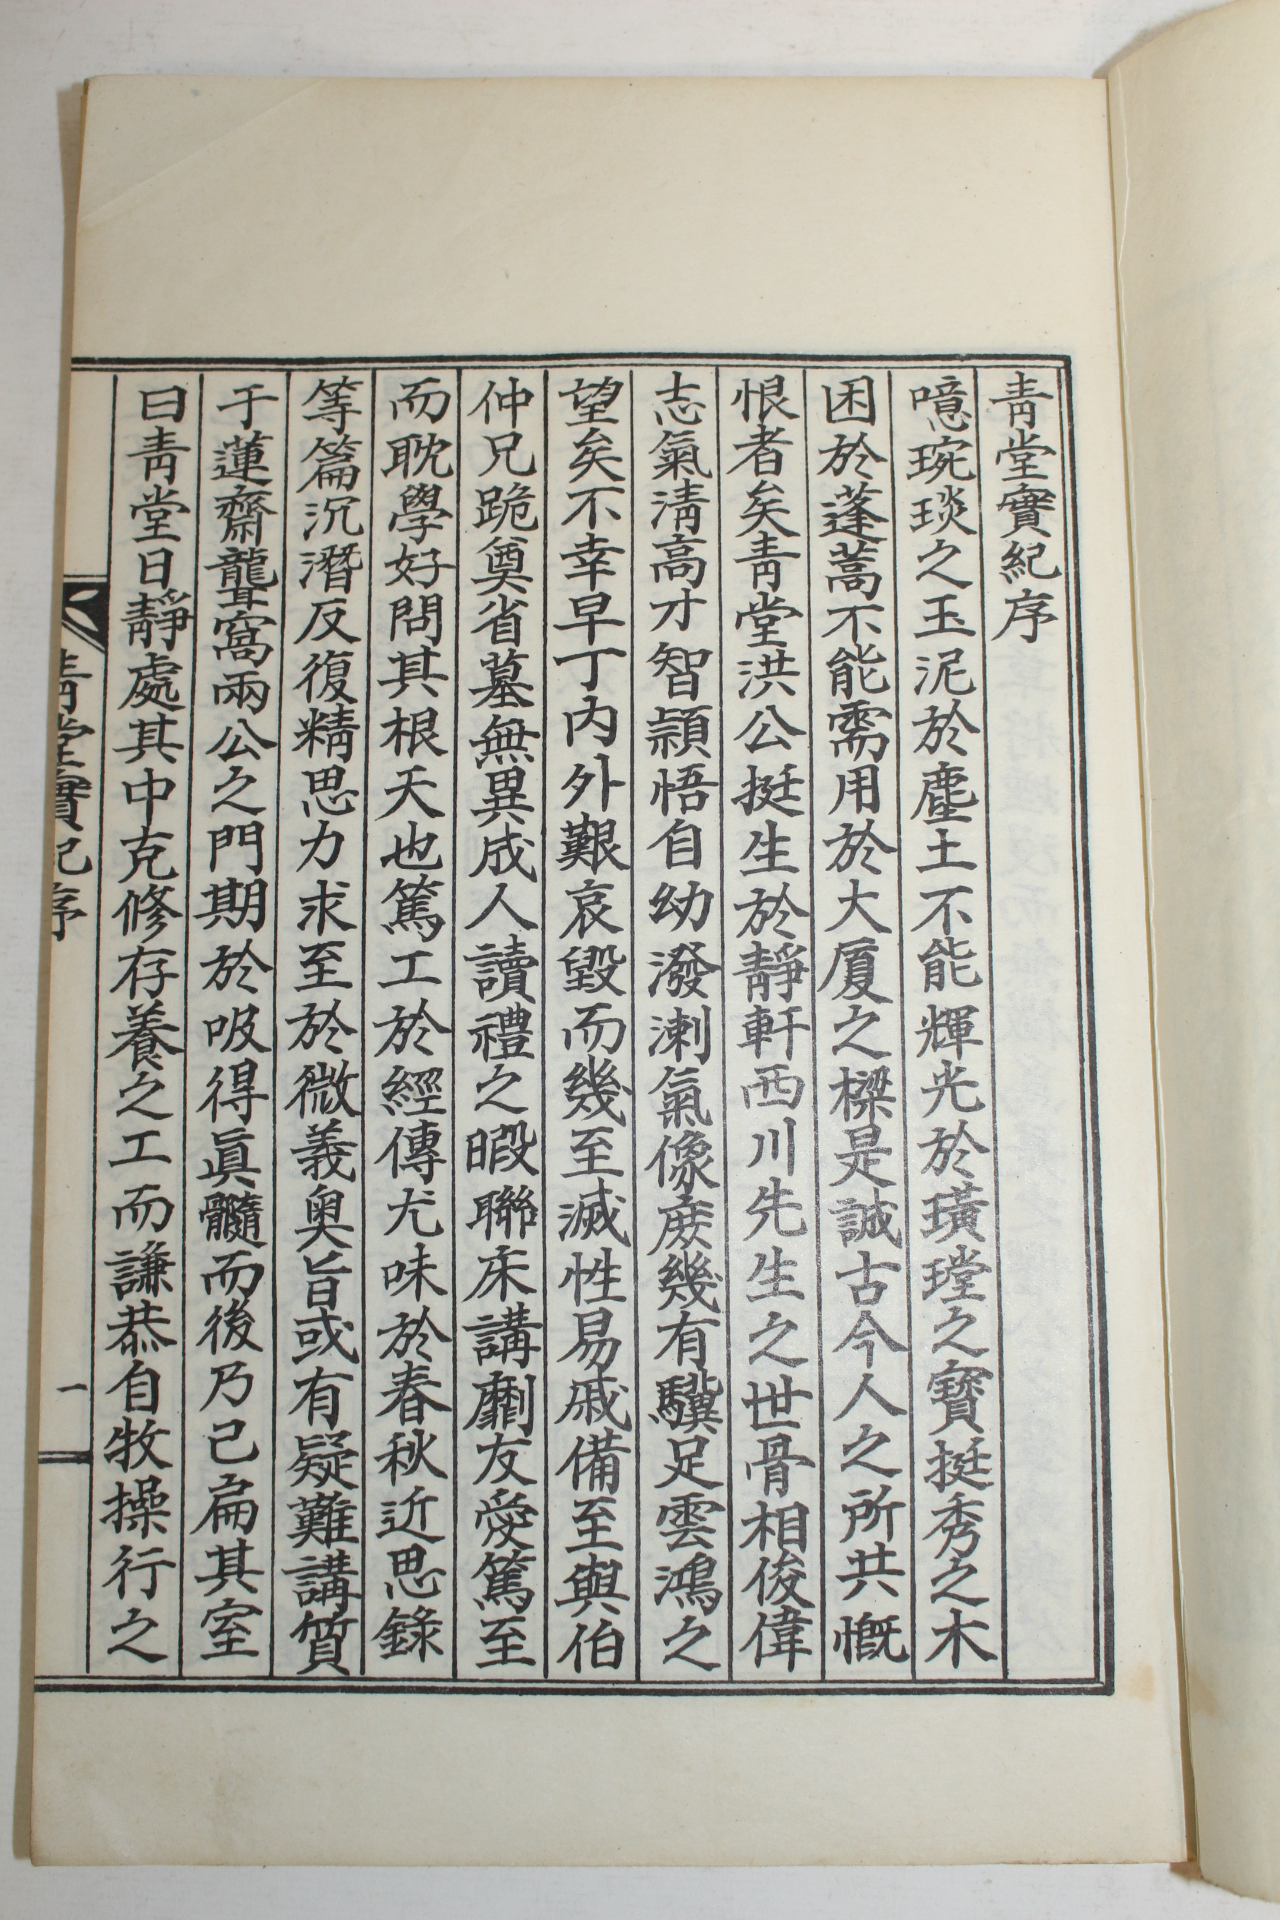 靑堂實紀序
噫琬琰之玉泥於塵土不能輝光於璜瑝之寶挺秀之木
困於蓬蒿不能需用於大厦之樑是誠古今人之所共慨
恨者矣靑堂洪公挺生於靜軒西川先生之世骨相俊偉
志氣淸高才智穎悟自幼潑溂氣像庶幾有驥足雲鴻之
望矣不幸早丁內外艱哀毀而幾至滅性易戚備至與伯
仲兄跪奠省墓無異成人讀禮之暇聯床講劘友愛篤至
而耽學好問其根天也篤工於經傳尤味於春秋近思錄
等篇沉潛反復精思力求至於微義奧旨或有疑難講質
于蓮齋聾窩兩公之門期於吸得眞髓而後乃已扁其室
曰靑堂日靜處其中克修存養之工而謙恭自牧操行之
靑堂實紀序
一